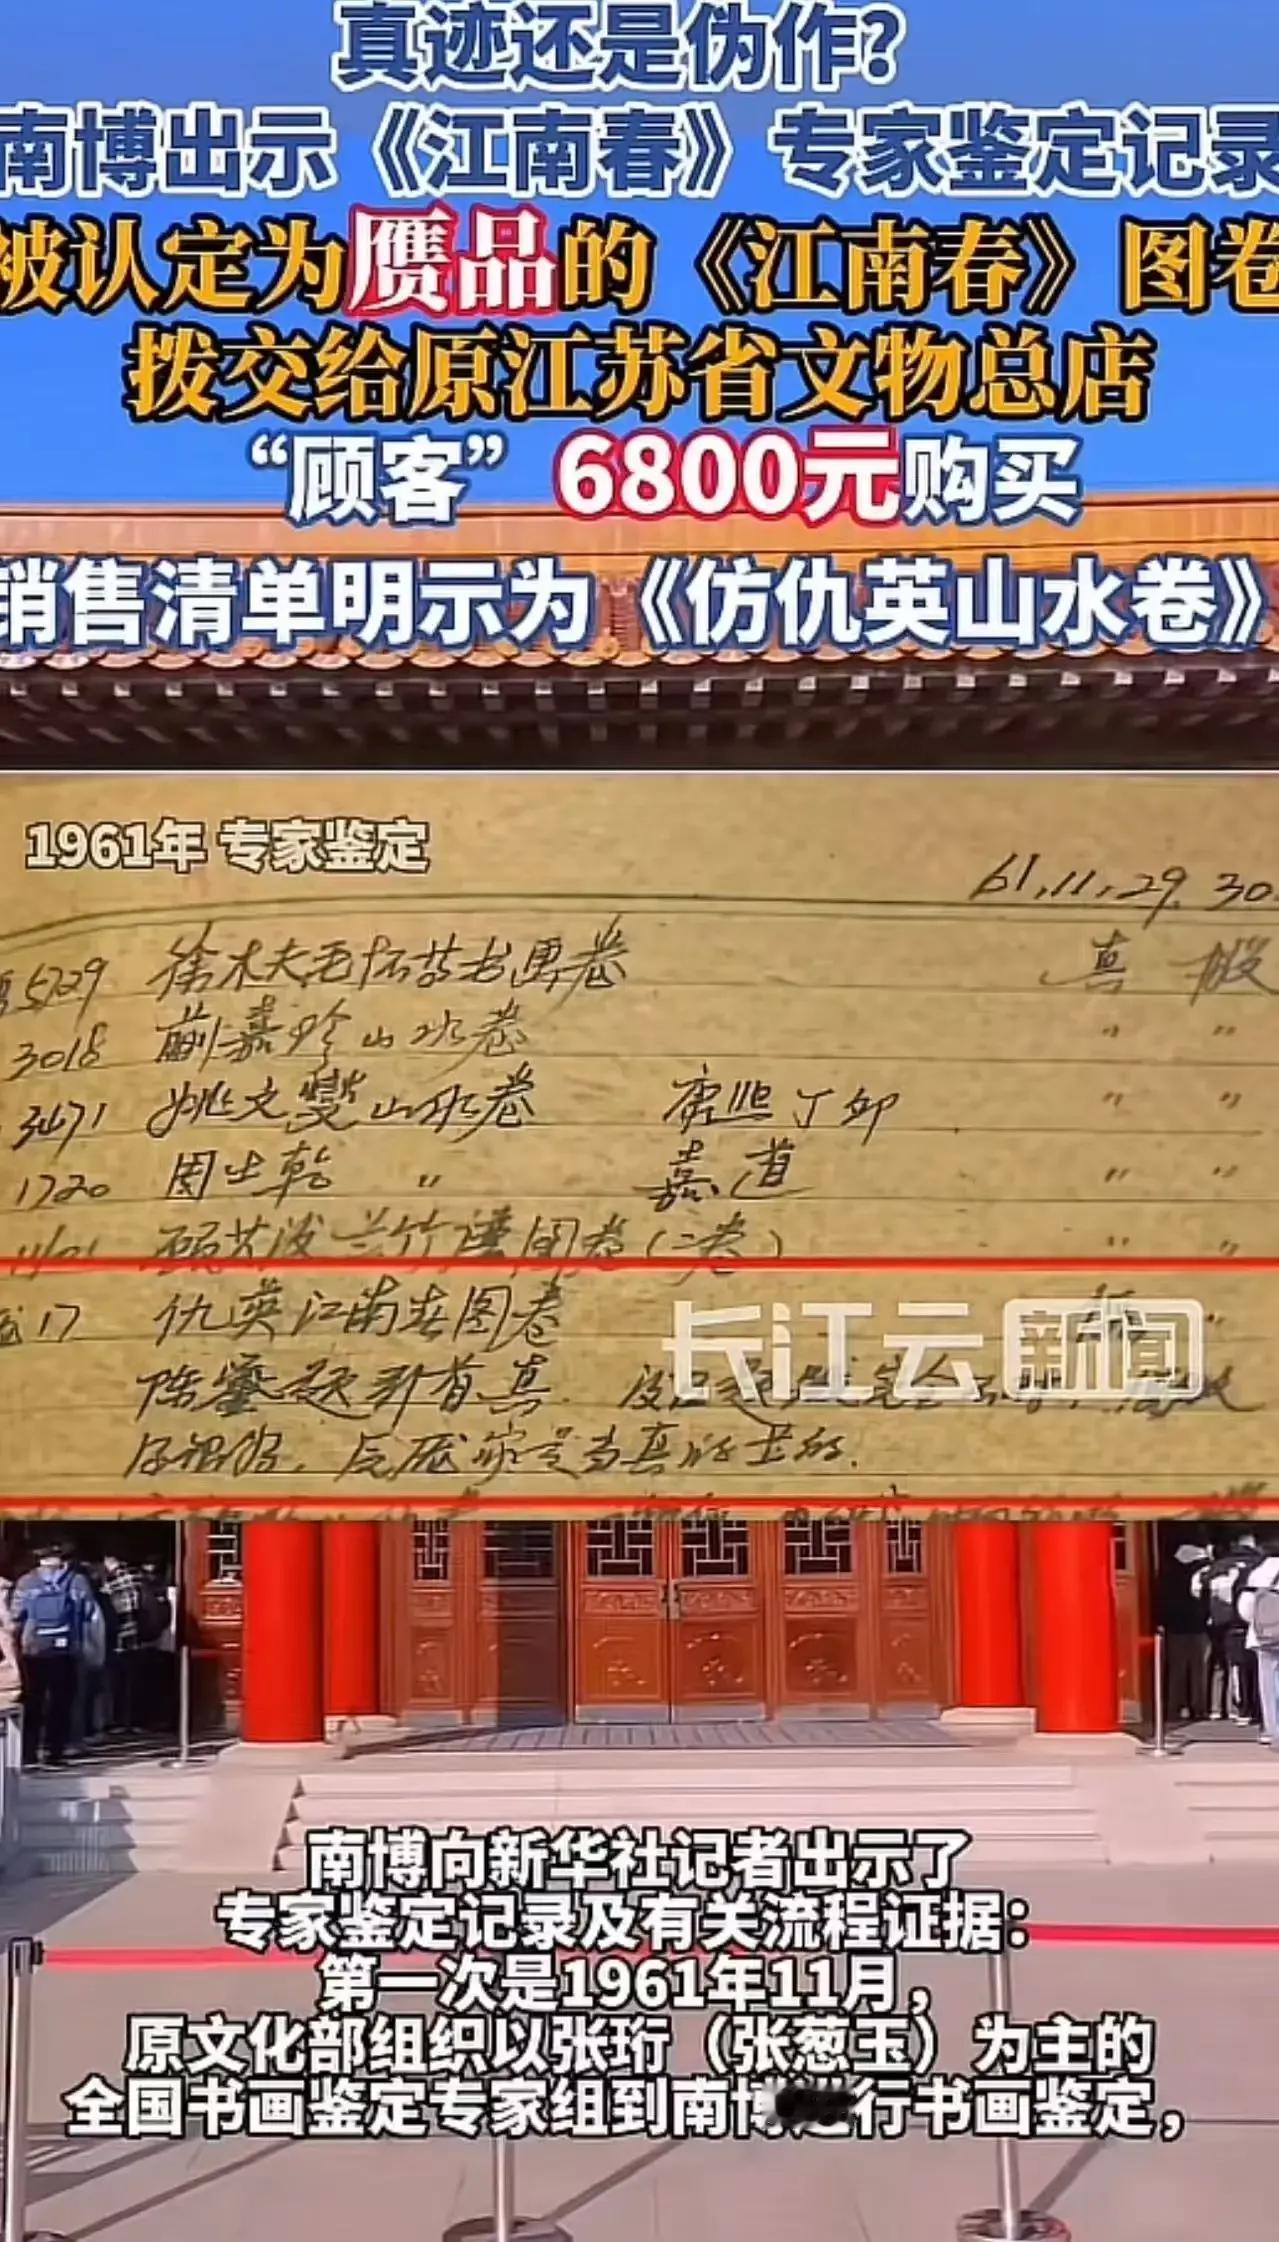 真迹还是伪作？
南博出示《江南春》专家鉴定记录
被认定为赝品的《江南春》图卷
拨交给原江苏省文物总店
“顾客”6800元购买
销售清单明示为《仿仇英山水卷》
1961年 专家鉴定
61.11.29.30.
5729 徐木夫毛怀芬书画卷 真 假
3018 蒯嘉珍山水卷 〃 〃
3471 姚文燮山水卷 康熙丁卯 〃 〃
1720 周生乾 〃 嘉道 〃 〃
兰竹 图卷（二卷） 〃 〃
17 仇英江南春图卷 〃
陈鎏题引首真.
长江云新闻
南博向新华社记者出示了
专家鉴定记录及有关流程证据：
第一次是1961年11月，
原文化部组织以张珩（张葱玉）为主的
全国书画鉴定专家组到南博 行书画鉴定，